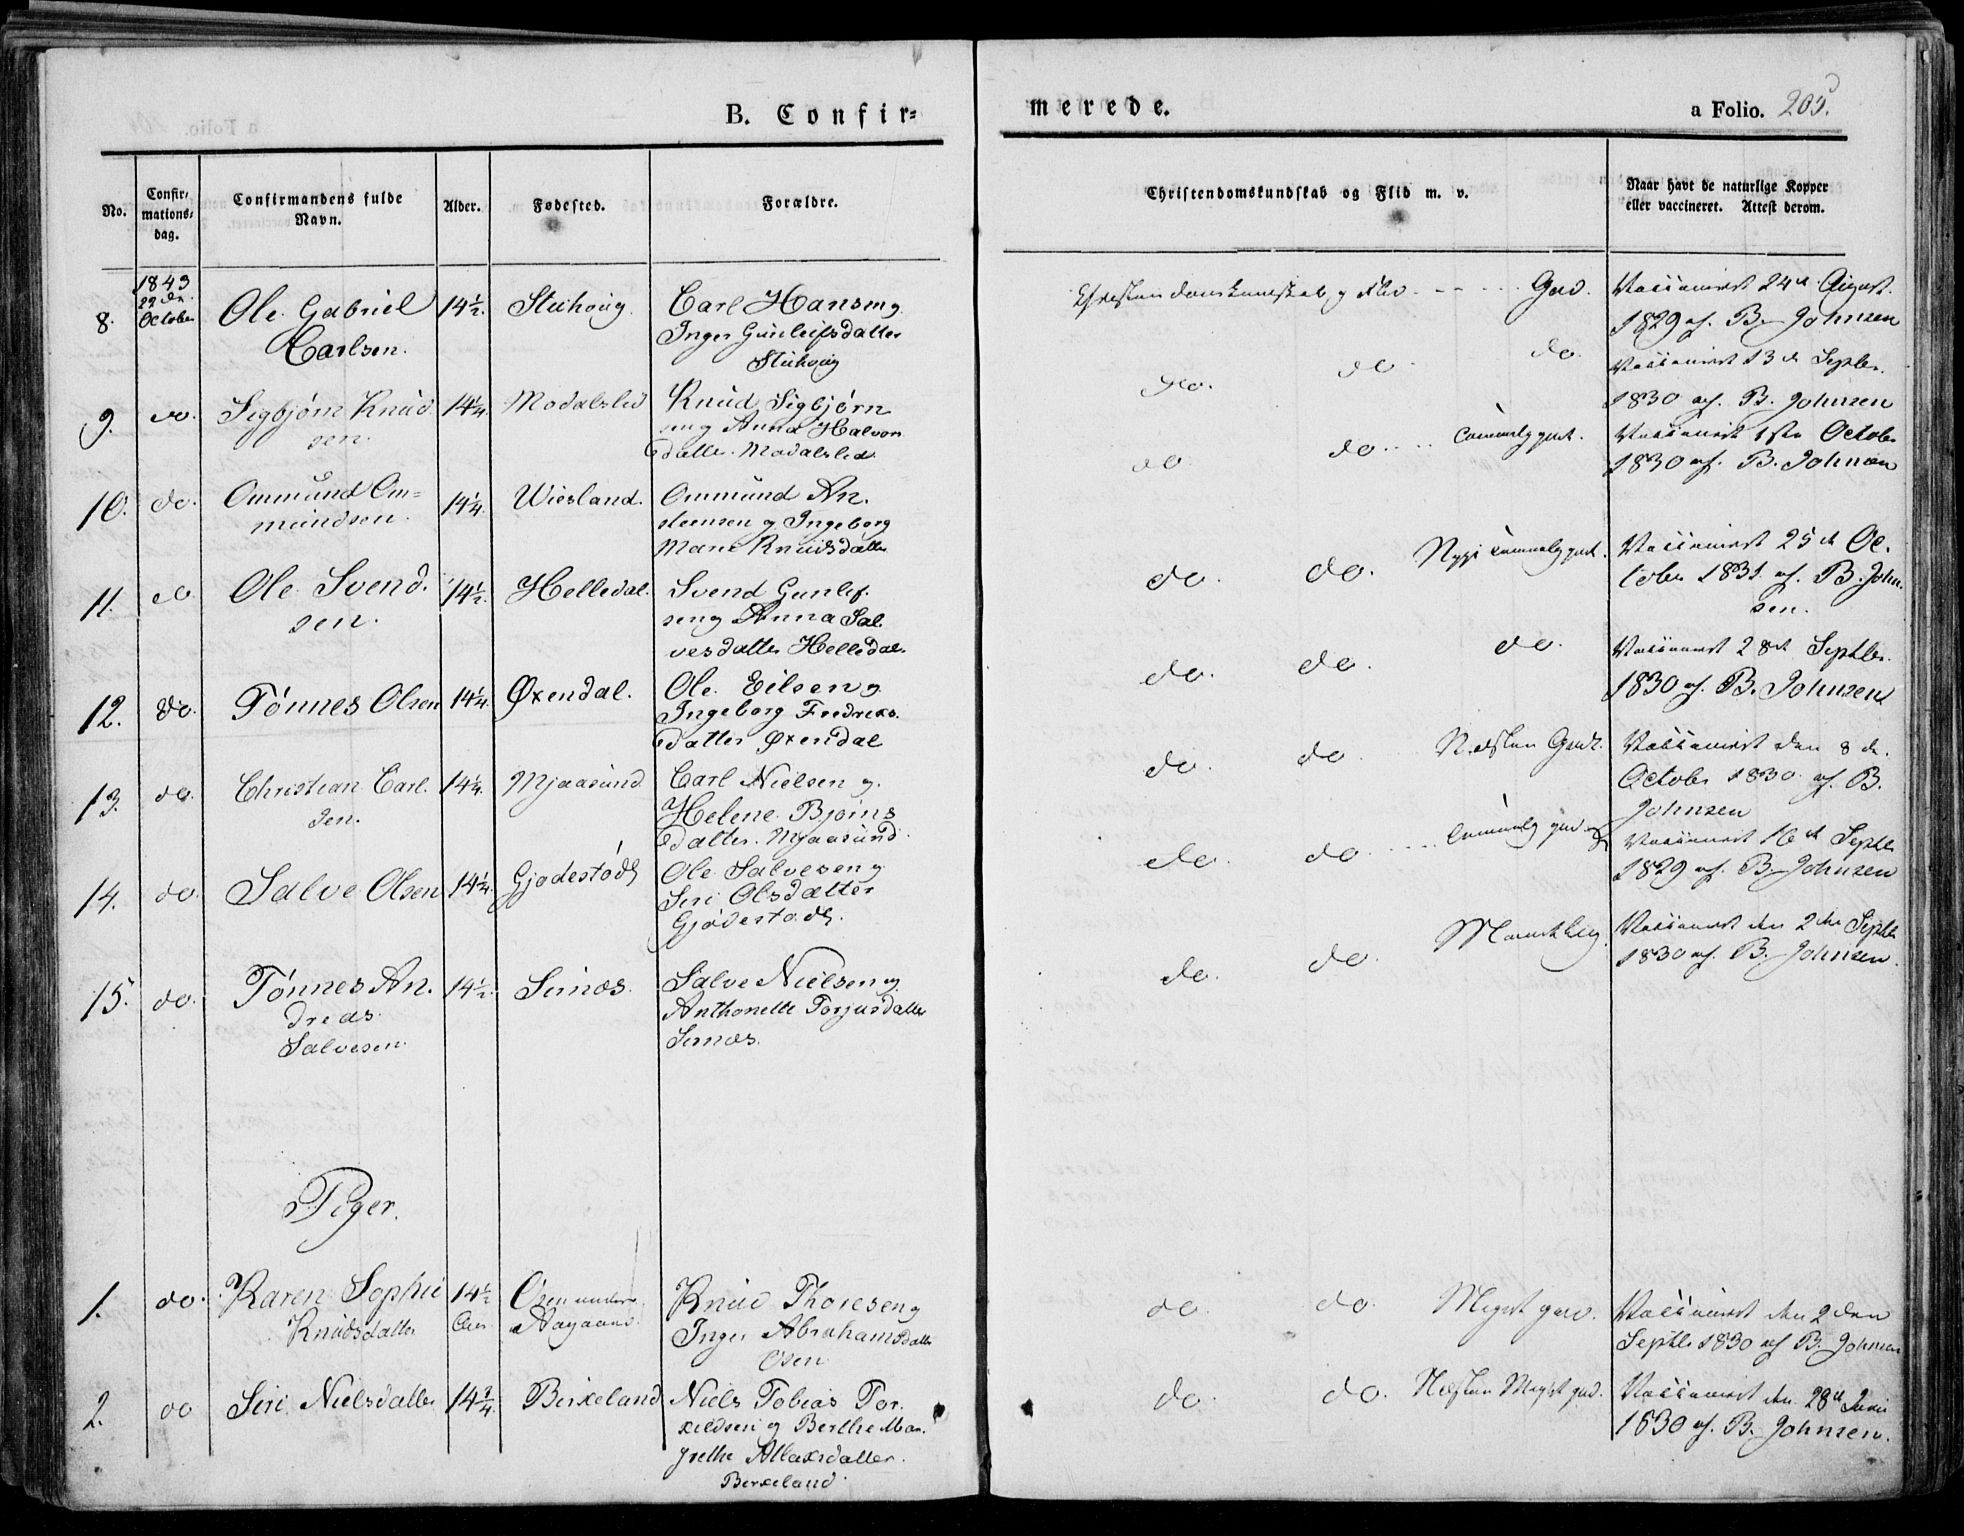 B. Confir=
merede.
a Folio. 205.
No.
Confir=
mations=
dag.
Confirmandens fulde
Navn.
Alder.
Fødested.
Forældre.
Christendomskundskab og Flid m. v.
Naar havt de naturlige Kopper
eller vaccineret. Attest derom.
8.
1843
22 de
October
Ole Gabriel
Carlsen.
14 1/2.
Stuhoug.
Carl Hansen og
Inger Gunleifsdatter
Stuhoug
Christendomskundskab og Flid - - - - - God.
Vaccineret 24de August.
1829 af. B. Johnsen
9.
do.
Sigbjørn Knud
sen.
14 1/4.
Modalsled
Knud Sigbjørn
sen og Anna Halvors
datter. Modalsled.
do. do. do.
Vaccineret 13de Septbr.
1830 af. B. Johnsen
10.
do.
Ommund Om=
mundsen.
14 1/4.
Wiesland.
Ommund An.
steensen og Ingeborg
Marie Knudsdatter
do do... temmelig godt.
Vaccineret 1ste October
1830 af. B. Johnsen
11.
do
Ole Svend.
sen.
14 1/2.
Helledal.
Svend Gunlef.
sen og Anna Sal
vesdatter Helledal.
do. do. temmelig godt.
Vaccineret 25de Oc.
tober 1831. af. B. John.
sen.
12.
do.
Tønnes Olsen
14 1/4.
Øxendal.
Ole Eilsen og
Ingeborg Fredriks.
datter Øxendal
do. do. do.
Vaccineret 28de Septbr.
1830 af. B. Johnsen
13.
do.
Christian Carl.
sen.
14 1/4.
Mjaasund
Carl Nielsen og.
Helene Bjørns
datter. Mjaasund.
do. do. Næsten Godt.
Vaccineret den 8de.
October 1830. af. B.
Johnsen
14.
do.
Salve Olsen
14 1/4.
Gjødestødt
Ole Salvesen og
Siri Olsdatter
Gjødestødt.
do. do.... temmelig god
Vaccineret 16de Septbr
1829 af. B. Johnsen
15.
do.
Tønnes An.
dreas
Salvesen.
14 1/2.
Sirnæs.
Salve Nielsen og
Anthonette Torjusdatter
Sirnæs.
do. do.
Vaccineret den 2den Septbr
1830 af. B. Johnsen.
Piger.
1.
do.
Karen Sophie
Knudsdatter
14 1/2
Aar.
Osen under
Aagaard.
Knud Thoresen og
Inger Abrahamsdatter
Osen
do. do. Meget god.
Vaccineret den 2den
Septbr 1830 af B. Johnsen
2.
do
Siri Nielsdatter
14 3/4.
Birkeland
Niels Tobias Tor.
kildsen og Berthe Mar.
grethe Atlaksdatter.
Berkeland.
do. do. Næsten Meget god.
Vaccineret den 28de Juni
1830 af. B. Johnsen.